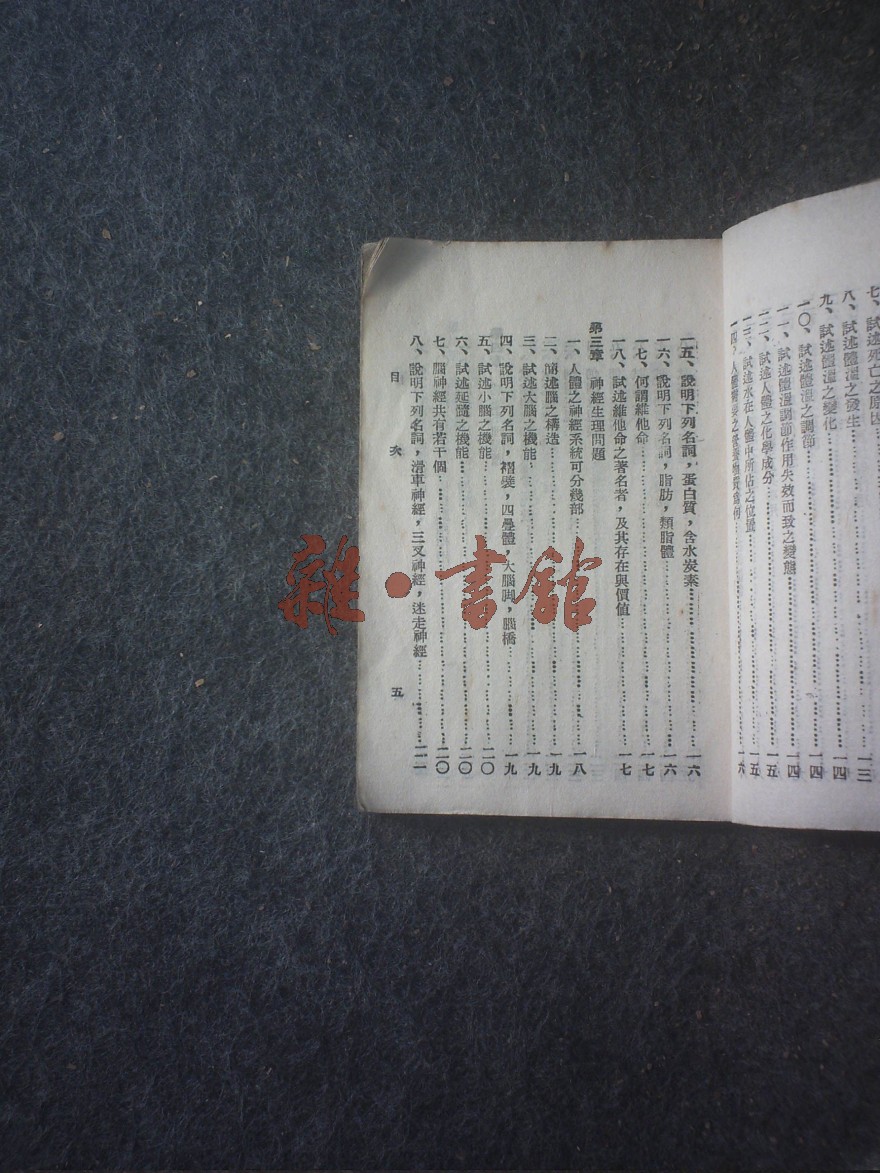 七、試述死亡之原因
八、試述體溫之發生……一三
九、試述體溫之變化……一四
一〇、試述體溫之調節……一四
一一、試述體溫調節作用失效而致之變態……一四
一二、試述人體之化學成分……一五
一三、試述水在人體中所佔之位置……一五
一四、人體需要之營養物質爲何……六
一五、說明下列名詞，蛋白質，含水炭素……一六
一六、說明下列名詞，脂肪，類脂體……一六
一七、何謂維他命……一七
一八、試述維他命之著名者，及其存在與價值……一七
第三章 神經生理問題
一、人體之神經系統可分幾部……一八
二、簡述腦之構造……一九
三、試述大腦之機能……一九
四、說明下列名詞，褶襞，四疊體，大腦脚，腦橋……一九
五、試述小腦之機能……二〇
六、試述延髓之機能……二〇
七、腦神經共有若干個……二〇
八、說明下列名詞，滑車神經，三叉神經，迷走神經……二一
目 次 五
雜·書館